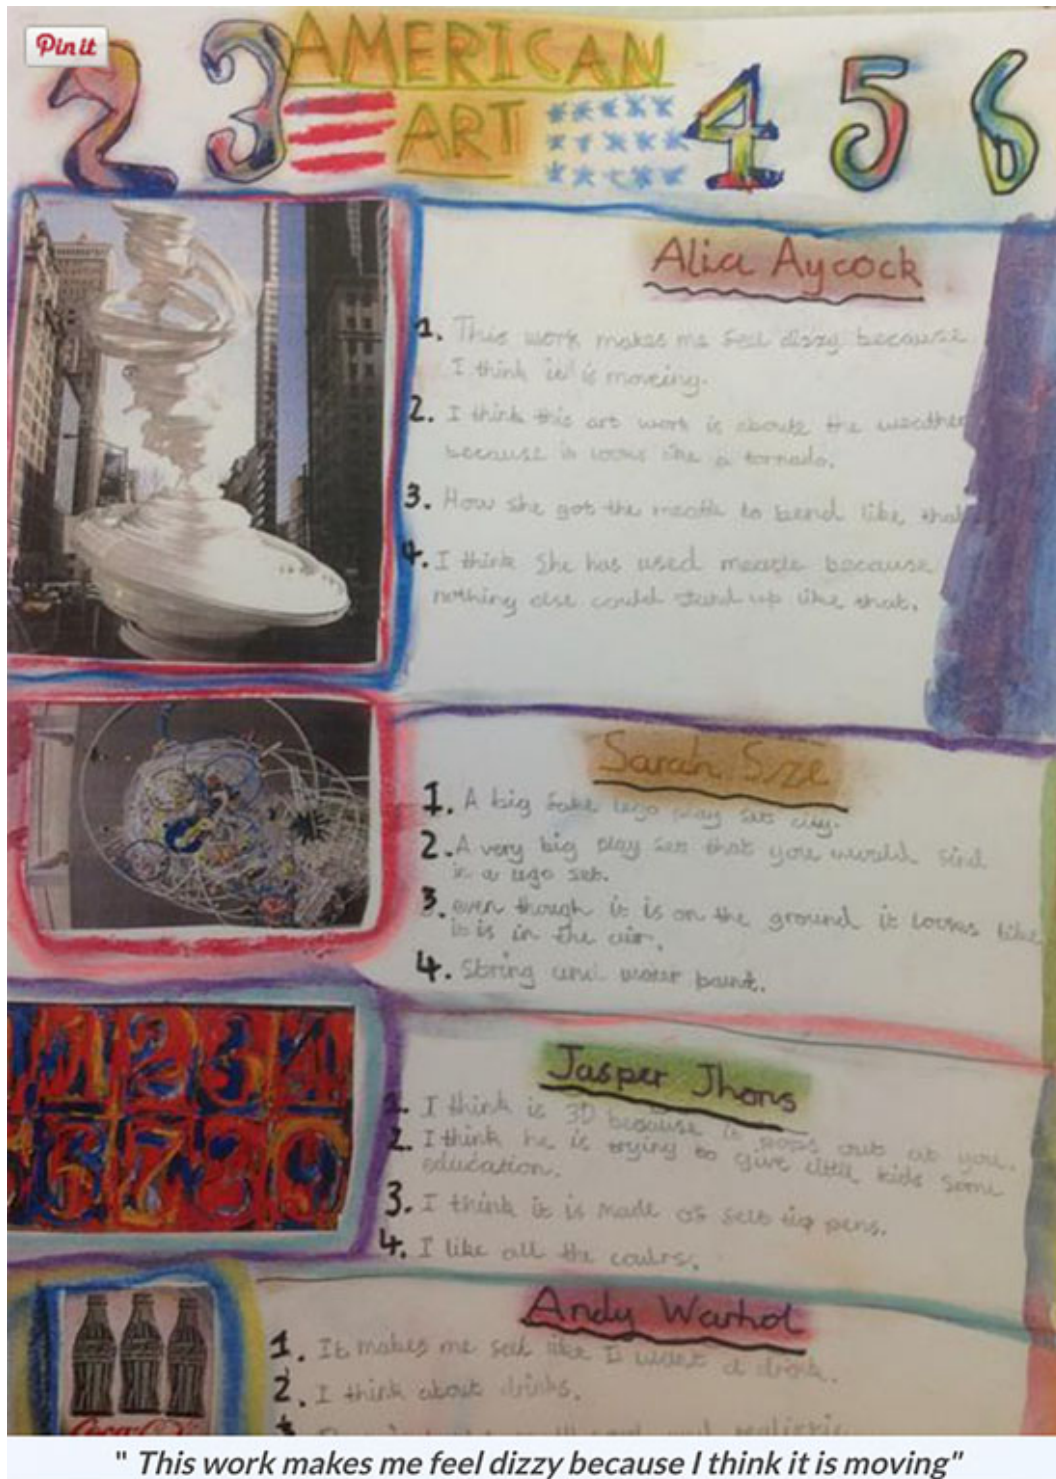 Pin it
2 3 AMERICAN 4 5 6
ART
Alia Aycock
1. This work makes me feel dizzy because
I think it is moveing.
2. I think this art work is aboute the weather
because it looks like a tornado.
3. How she got the meatle to bend like that
4. I think she has used meatle because
nothing else could stand up like that.
Sarah Szze
1. A big fake lego play set city.
2. A very big play set that you would find
in a lego set.
3. even though it is on the ground it looks like
it is in the air.
4. String and water paint.
1 2 3 4
6 7 8 9
Jasper Jhons
1. I think is 3D because it pops out at you.
2. I think he is trying to give little kids some
education.
3. I think it is made of felt tip pens.
4. I like all the coulrs.
Andy Warhol
1. It makes me feel like I want a drink.
2. I think about drinks.
3. realistic
Coca-Cola
" This work makes me feel dizzy because I think it is moving"